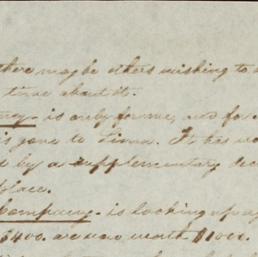 there may be others wishing to
time about it.
is only for me, and for
is gone to Lima. It has
by a supplementary
place.
Company - is looking up
$400. are now worth $1000.